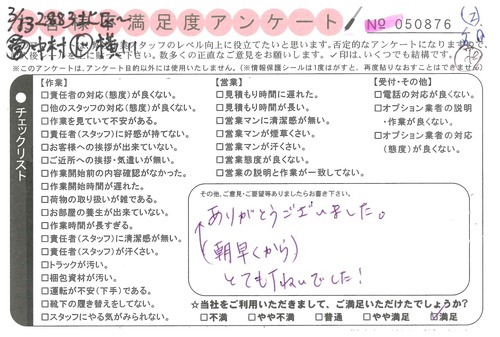 3/13 2883
お客様満足度アンケート
№ 050876
中村
スタッフのレベル向上に役立てたいと思います。否定的なアンケートになりますので、
数多くの正直なご意見をお願いします。✓印は、いくつでも結構です。
※このアンケートは、アンケート目的以外には使用いたしません。(※情報保護シールは1度はがすと、再度貼りなおすことはできません)
チェックリスト
【作業】
□責任者の対応(態度)が良くない。
□他のスタッフの対応(態度)が良くない。
□作業を見ていて不安がある。
□責任者(スタッフ)に好感が持てない。
□お客様への挨拶が出来ていない。
□ご近所への挨拶・気遣いが無い。
□作業開始前の内容確認がなかった。
□作業開始時間が遅れた。
□荷物の取り扱いが雑である。
□お部屋の養生が出来ていない。
□作業時間が長すぎる。
□責任者(スタッフ)に清潔感が無い。
□責任者(スタッフ)が汗くさい。
□トラックが汚い。
□梱包資材が汚い。
□運転が不安(下手)である。
□靴下の履き替えをしてない。
□スタッフにやる気がみられない。
【営業】
□見積もり時間に遅れた。
□見積もり時間が長い。
□営業マンに清潔感が無い。
□営業マンが煙草くさい。
□営業マンが汗くさい。
□営業態度が良くない。
□営業の説明と作業が一致してない。
【受付・その他】
□電話の対応が良くない。
□オプション業者の説明
・作業が良くない。
□オプション業者の対応
(態度)が良くない。
その他、ご意見・ご要望等ありましたらお書き下さい。
ありがとうございました。
(朝早くから)
とてもていねいでした!
☆当社をご利用いただきまして、ご満足いただけたでしょうか?
□不満 □やや不満 □普通 □やや満足 ☑満足